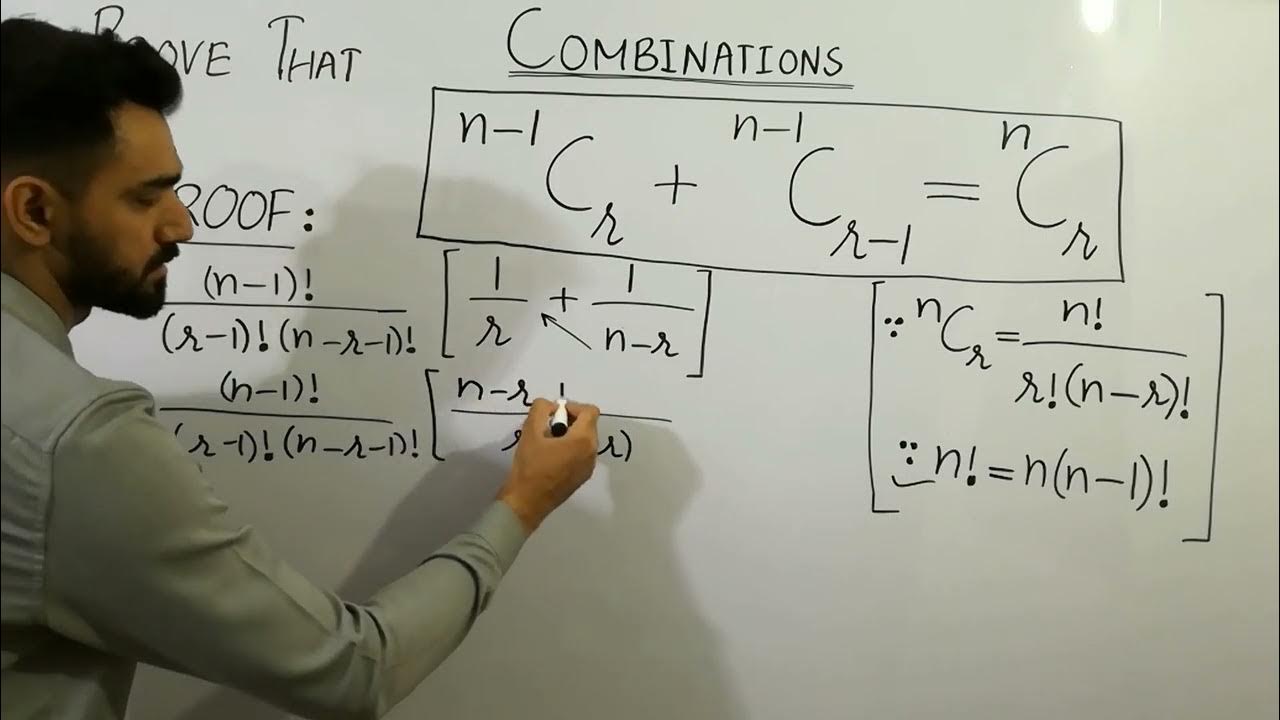 PROVE THAT
COMBINATIONS
n-1Cr + n-1Cr-1 = nCr
PROOF:
(n-1)! / (r-1)!(n-r-1)! [1/r + 1/(n-r)]
(n-1)! / (r-1)!(n-r-1)! [n-r
r)
∵ nCr = n! / r!(n-r)!
∵ n! = n(n-1)!